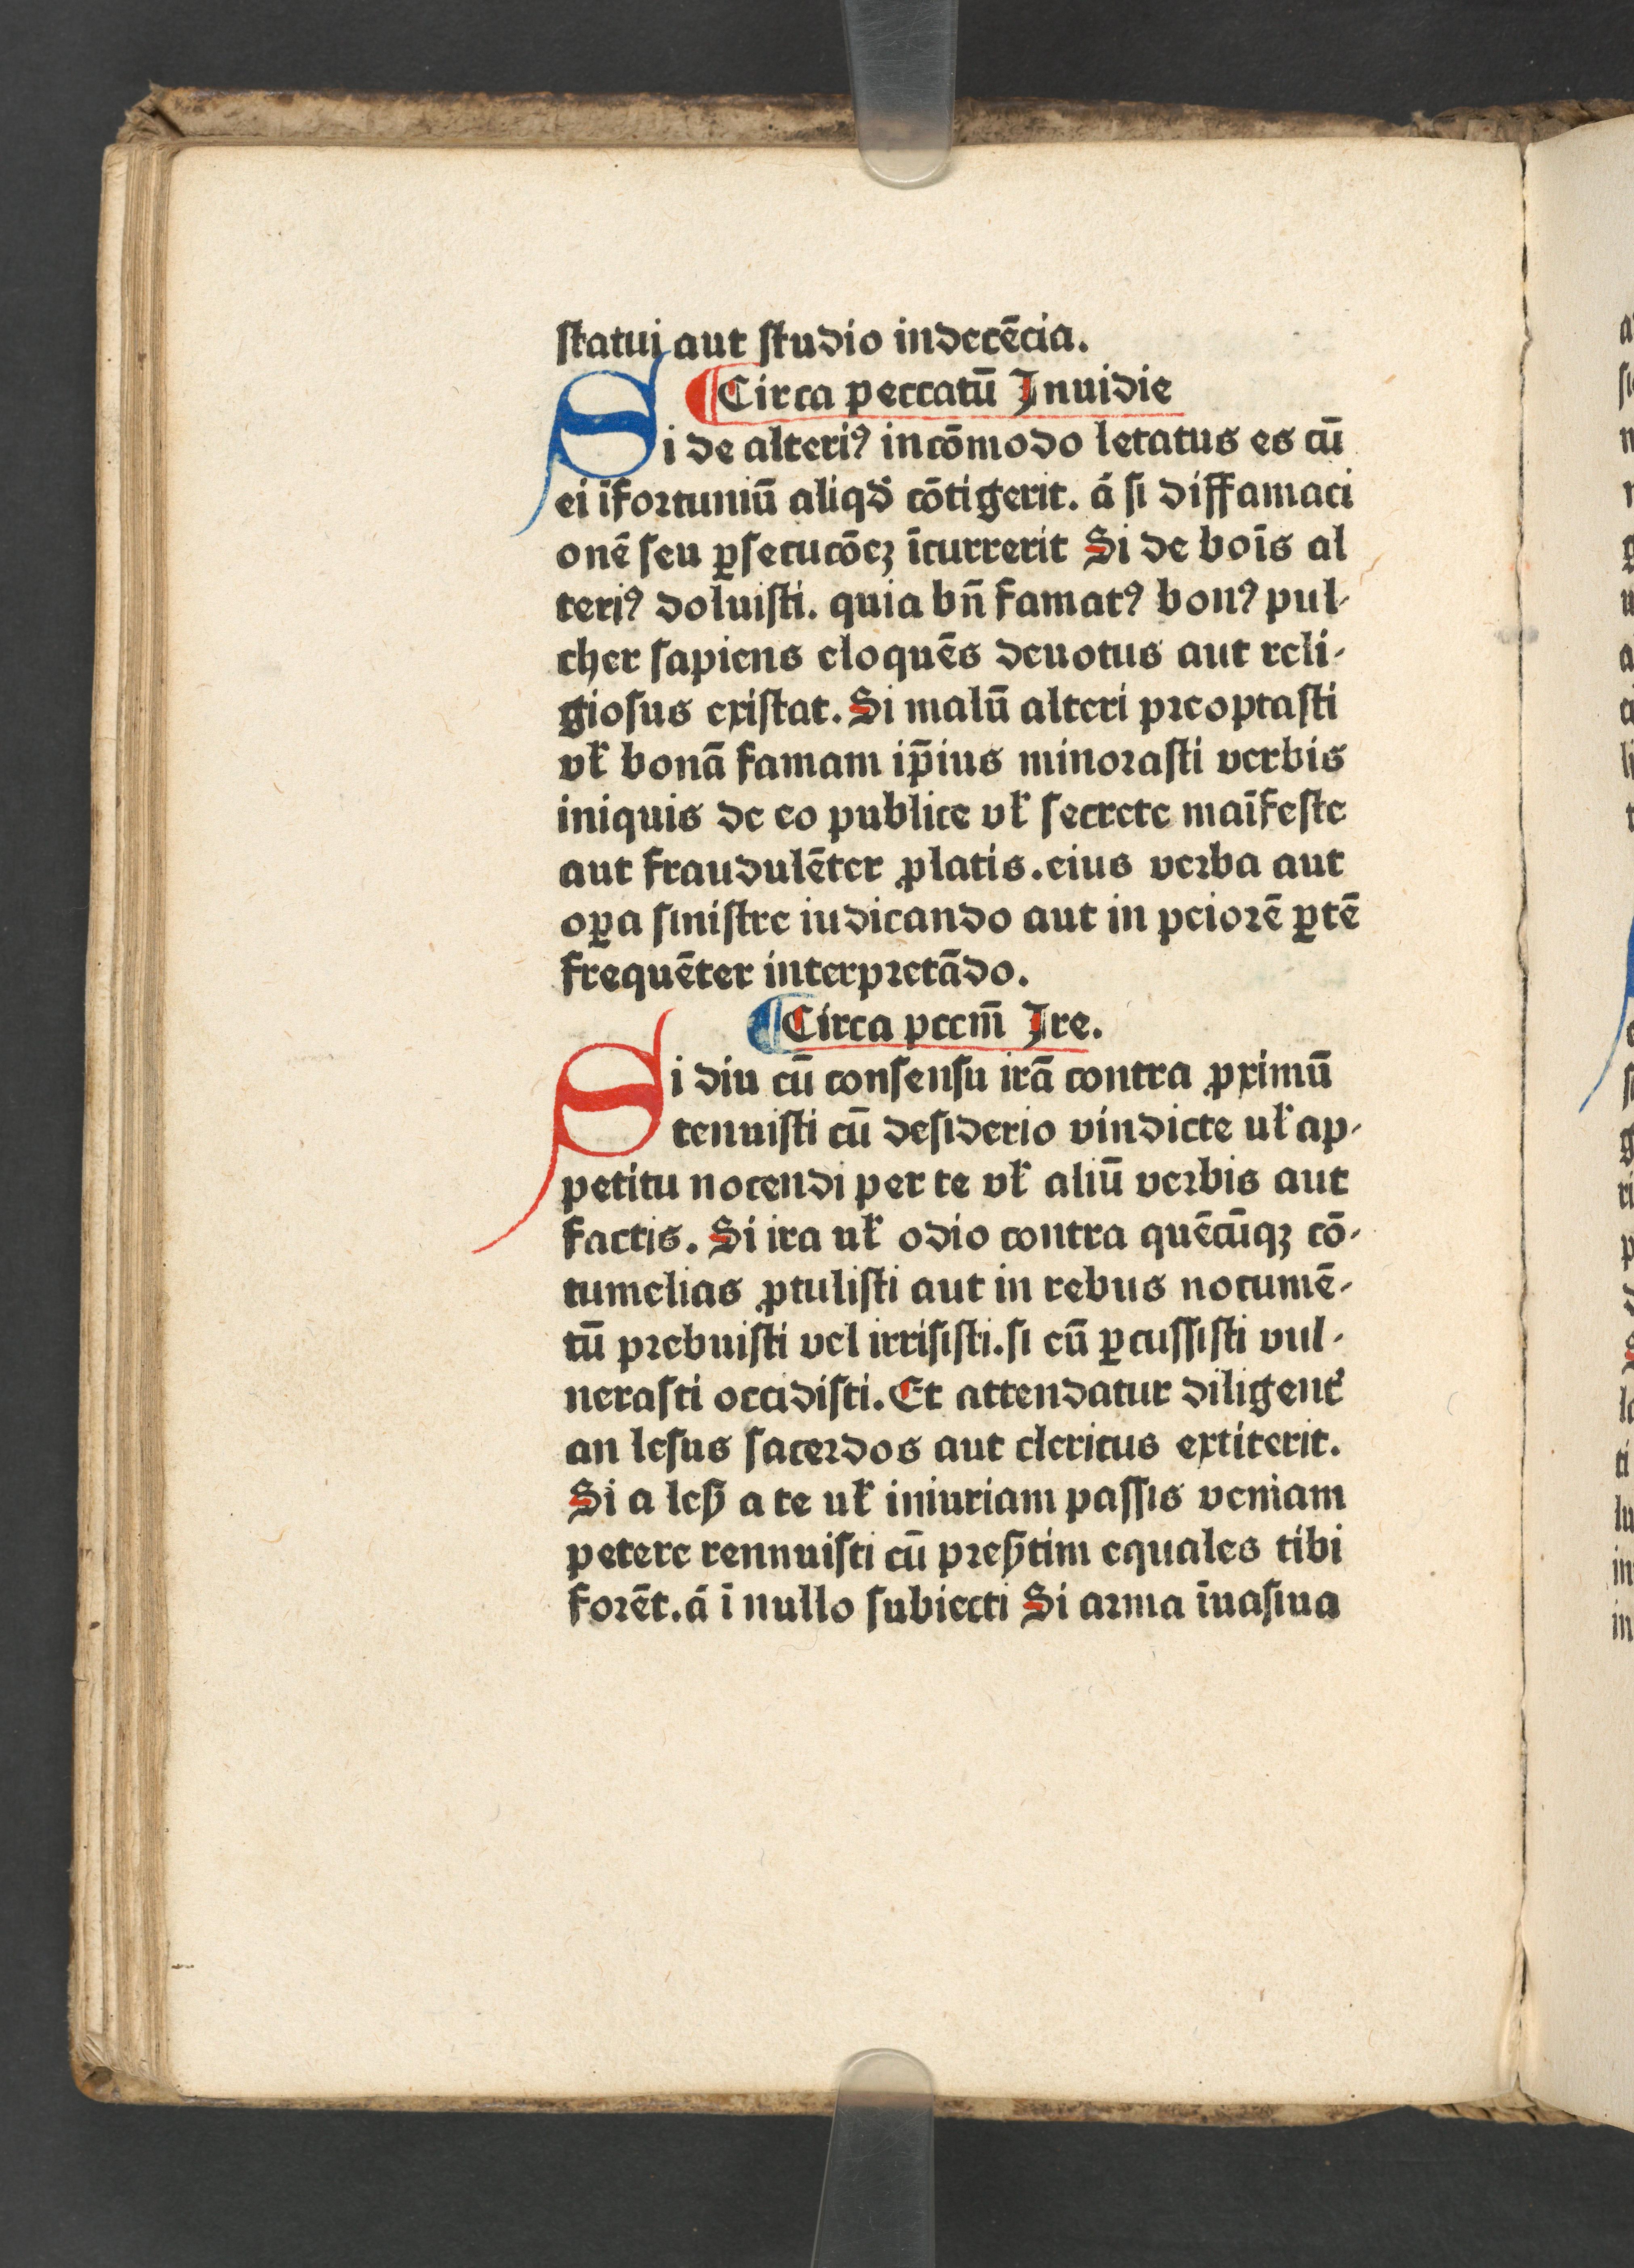 statui aut studio indecēcia.
¶Circa peccatū Inuidie
Si de alteriꝰ incōmodo letatus es cū
ei īfortuniū aliqd̄ cōtigerit. á si diffamaci
onē seu ꝑsecucōeꝫ īcurrerit Si de boīs al
teriꝰ doluisti. quia bn̄ famatꝰ bonꝰ pul-
cher sapiens eloquēs deuotus aut reli-
giosus existat. Si malū alteri preoptasti
vł bonā famam ip̄ius minorasti verbis
iniquis de eo publice vł secrete maīfeste
aut fraudulēter ꝓlatis. eius verba aut
oꝑa sinistre iudicando aut in peiorē ꝑtē
frequēter interpretādo.
¶Circa pccm̄ Ire.
Si diu cū consensu irā contra ꝓximū
tenuisti cū desiderio vindicte uł ap-
petitu nocendi per te vł aliū verbis aut
factis. Si ira uł odio contra quēcūqꝫ cō-
tumelias ꝓtulisti aut in rebus nocumē-
tū prebuisti vel irrisisti. si eū ꝑcussisti vul-
nerasti occidisti. Et attendatur diligent᷑
an lesus sacerdos aut clericus extiterit.
Si a leẜ a te uł iniuriam passis veniam
petere rennuisti cū preẜtim equales tibi
forēt. á ī nullo subiecti Si arma īuasiua